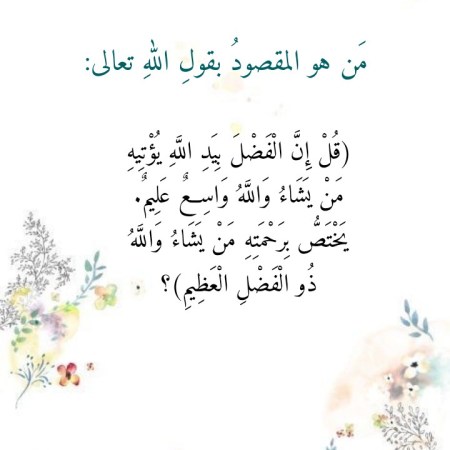 مَن هو المقصودُ بقولِ اللهِ تعالى:
(قُلْ إِنَّ الْفَضْلَ بِيَدِ اللَّهِ يُؤْتِيهِ
مَنْ يَشَاءُ وَاللَّهُ وَاسِعٌ عَلِيمٌ.
يَخْتَصُّ بِرَحْمَتِهِ مَنْ يَشَاءُ وَاللَّهُ
ذُو الْفَضْلِ الْعَظِيمِ)؟